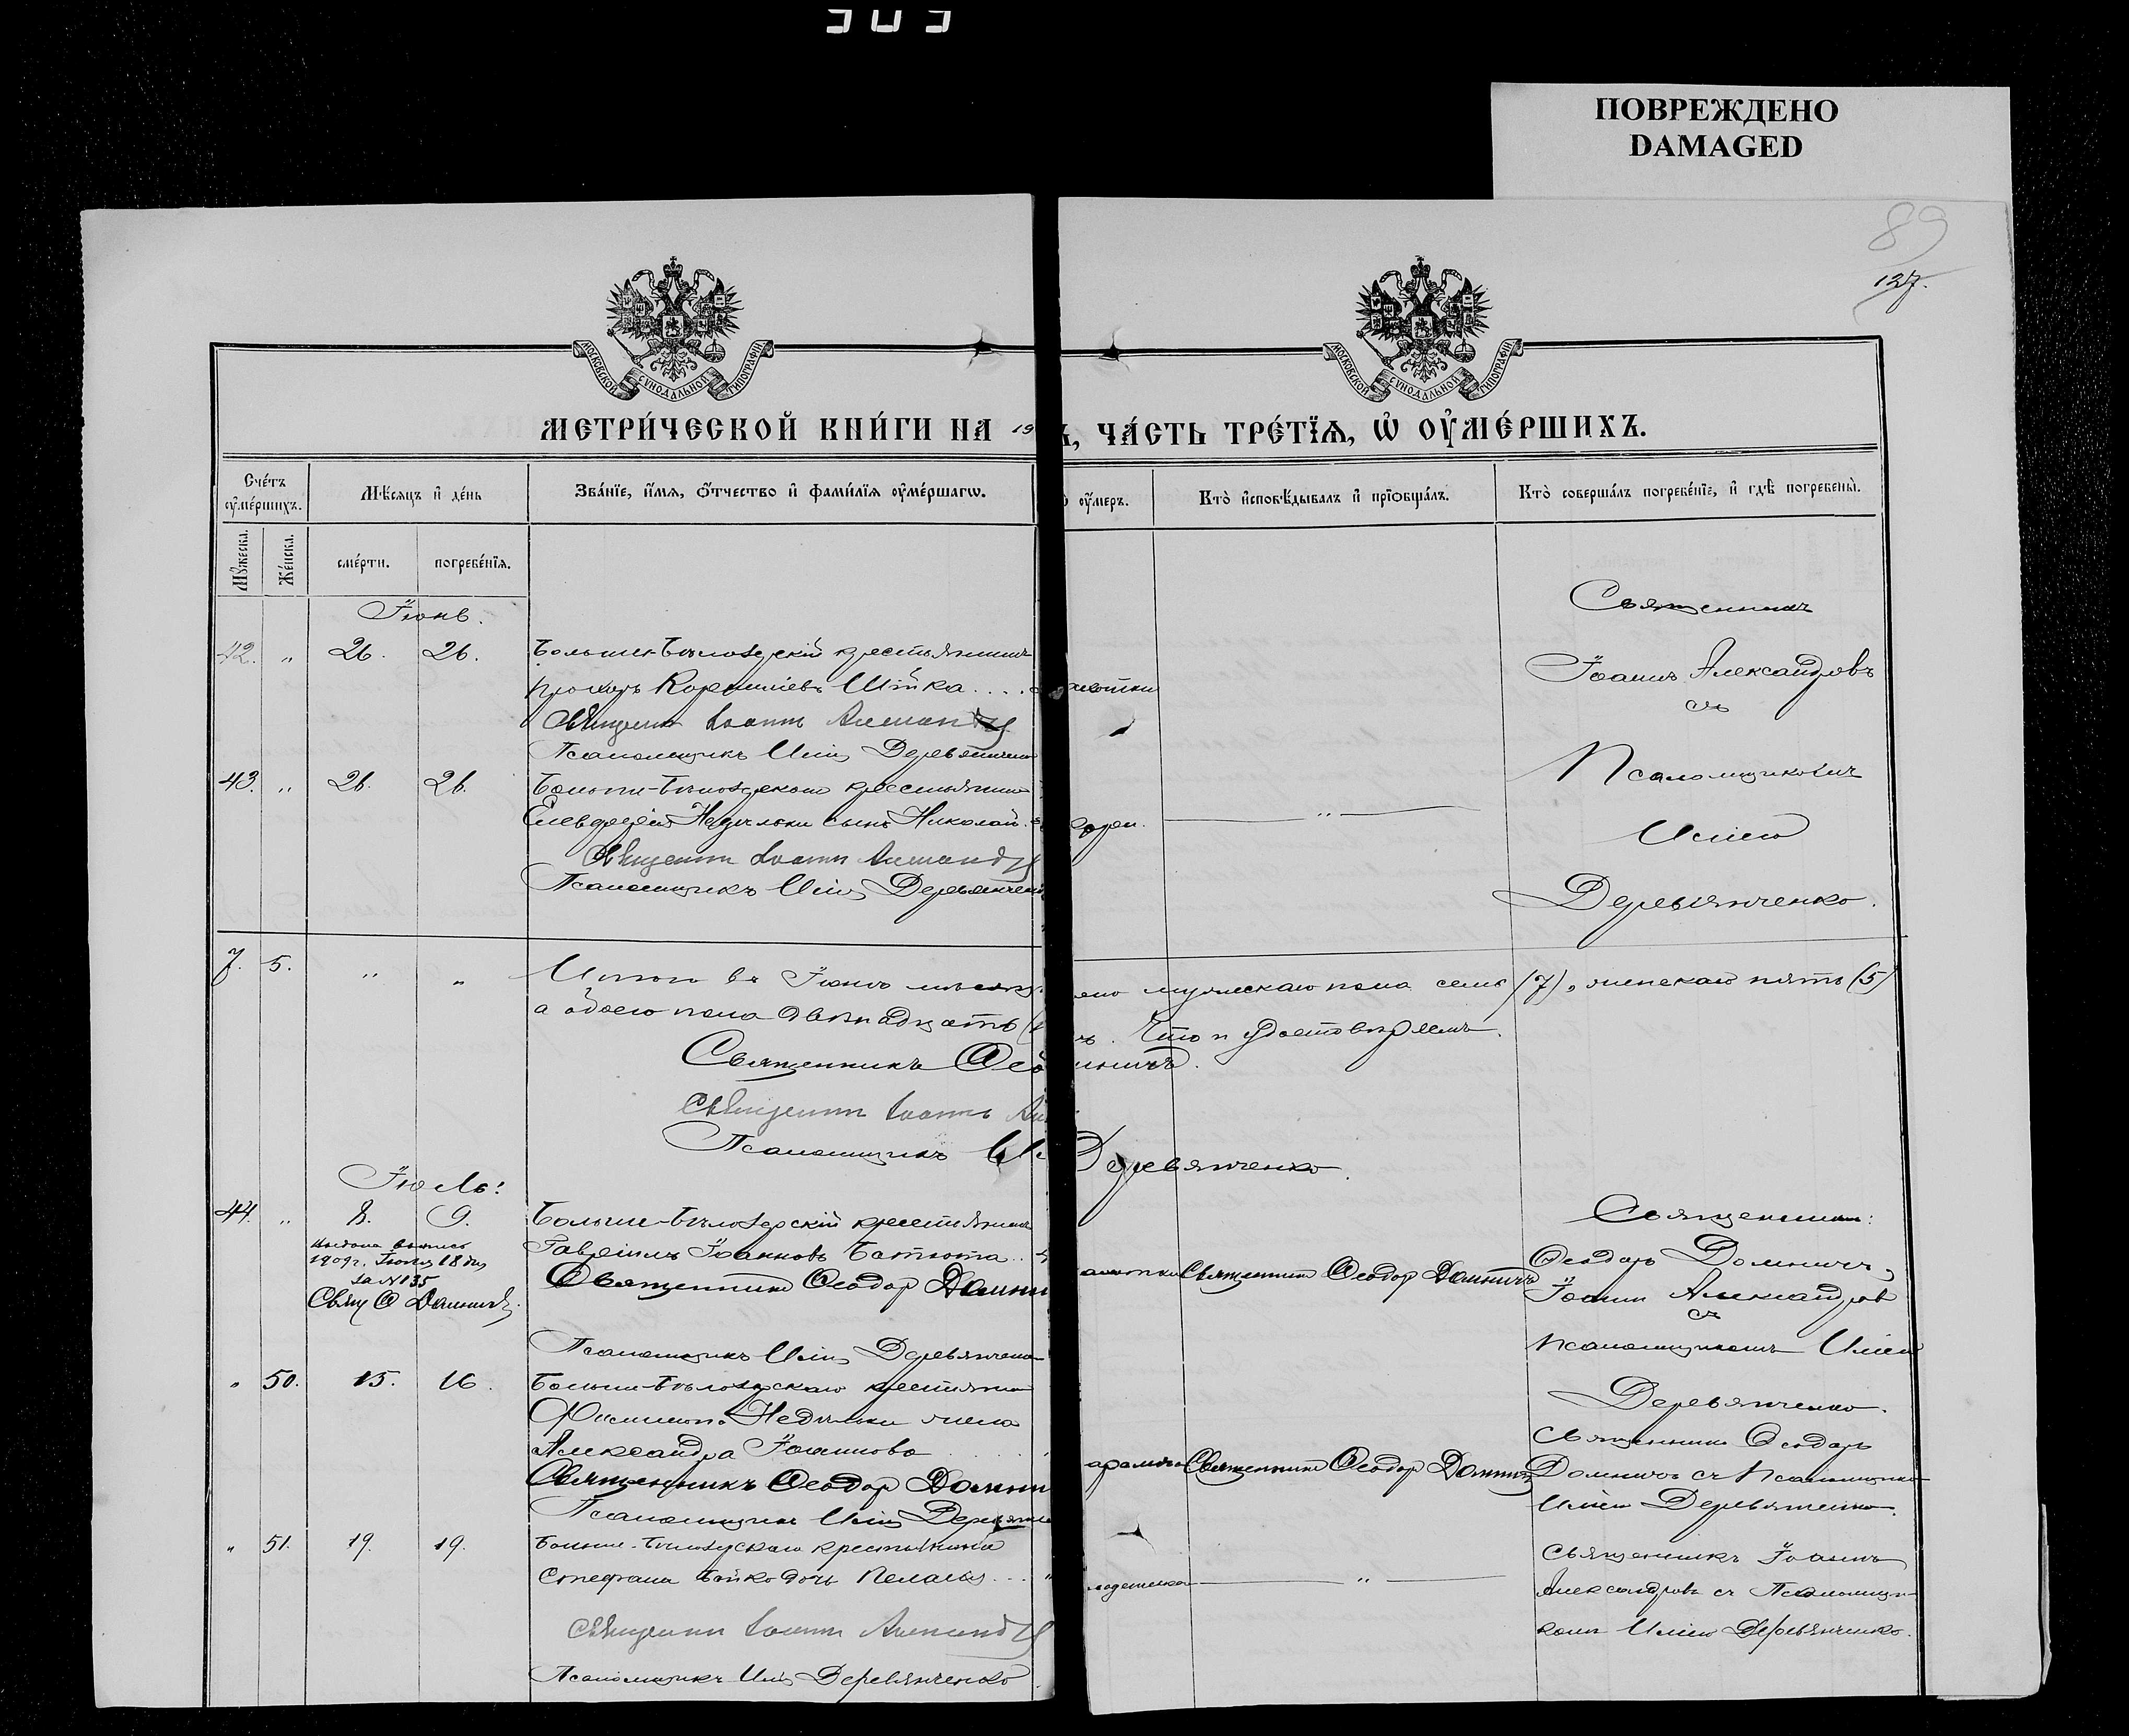 ПОВРЕЖДЕНО
DAMAGED
89
127.
МОСКОВСКОЙ СУНОДАЛЬНОЙ ТИПОГРАФІИ
МОСКОВСКОЙ СУНОДАЛЬНОЙ ТИПОГРАФІИ
МЕТРИ́ЧЕСКОЙ КНИ́ГИ НА 19
, ЧА́СТЬ ТРЕ́ТЇѦ, Ѡ҆ ОУ҆МЕ́РШИХЪ.
Сче́тъ оу҆ме́ршихъ.
Мꙋ́жеска.
Же́нска.
Мѣ́сяцъ и҆ де́нь
сме́рти.
погребе́нїѧ.
Зва́нїе, и҆́мѧ, ѻ҆́тчество и҆ фами́лїѧ оу҆ме́ршагѡ.
оу҆́меръ.
Кто̀ и҆сповѣ́дывалъ и҆ прїѡбща́лъ.
Кто̀ соверша́лъ погребе́нїе, и҆ гдѣ̀ погребены̀.
Іюнь.
42. " 26. 26. Больше-Бѣлозерскій крестьянинъ
Прохоръ Корниліевъ Шійка....
Священникъ Іоаннъ Александровъ
Псаломщикъ Илія Деревянченко
Священникъ
Іоаннъ Александровъ
съ
Псаломщикомъ
Иліею
Деревянченко.
43. " 26. 26. Больше-Бѣлозерскаго крестьянина
Елевферія Недѣльки сынъ Николай.
Священникъ Іоаннъ Александровъ
Псаломщикъ Илія Деревянченко
"
7. 5. " " Итого въ Іюнѣ мѣсяцѣ
ено мужескаго пола семь (7), женскаго пять (5)
а обоего пола двѣнадцать
Что и удостовѣряемъ.
Священникъ Ѳеод
мничъ.
Священникъ Іоаннъ Ал
Псаломщикъ Ил
Деревянченко.
Іюль:
44. " 8. 9. Больше-Бѣлозерскій крестьянинъ
Гавріилъ Іоанновъ Батюта..
Священникъ Ѳеодор Домни
Псаломщикъ Илія Деревянченко
Выдана выпись
1909г. Іюня 18 дня
за №135
Свящ Ѳ Домничъ.
Священникъ Ѳеодор Домничъ
Священники:
Ѳеодоръ Домничъ,
Іоаннъ Александровъ
съ
Псаломщикомъ Иліею
Деревянченко.
" 50. 15. 16. Больше-Бѣлозерскаго крестьянина
Филиппа Недѣльки жена
Александра Іоаннова
Священникъ Ѳеодор Домни
Псаломщикъ Илія Деревянче
Священникъ Ѳеодор Домничъ
Священникъ Ѳеодоръ
Домничъ съ Псаломщикомъ
Иліею Деревянченко.
" 51. 19. 19. Больше-Бѣлозерскаго крестьянина
Стефана Бойко дочь Пелагія...
Священникъ Іоаннъ Александровъ
Псаломщикъ Илія Деревянченко
"
Священникъ Іоаннъ
Александровъ съ Псаломщи-
комъ Иліею Деревянченко.